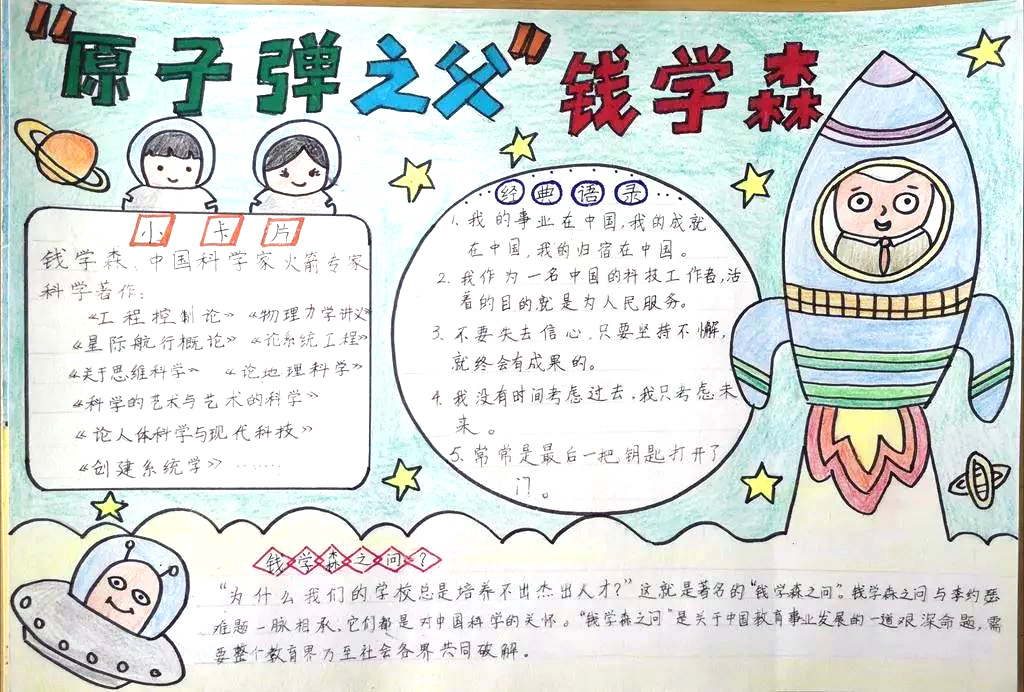 "原子弹之父"钱学森
小卡片
钱学森:中国科学家火箭专家
科学著作:
《工程控制论》 《物理力学讲义》
《星际航行概论》 《论系统工程》
《关于思维科学》 《论地理科学》
《科学的艺术与艺术的科学》
《论人体科学与现代科技》
《创建系统学》……
经典语录
1. 我的事业在中国,我的成就
在中国,我的归宿在中国。
2. 我作为一名中国的科技工作者,活
着的目的就是为人民服务。
3. 不要失去信心,只要坚持不懈,
就终会有成果的。
4. 我没有时间考虑过去,我只考虑未
来。
5. 常常是最后一把钥匙打开了
门。
钱学森之问?
"为什么我们的学校总是培养不出杰出人才?"这就是著名的"钱学森之问"。钱学森之问与李约瑟
难题一脉相承,它们都是对中国科学的关怀。"钱学森之问"是关于中国教育事业发展的一道艰深命题,需
要整个教育界乃至社会各界共同破解。